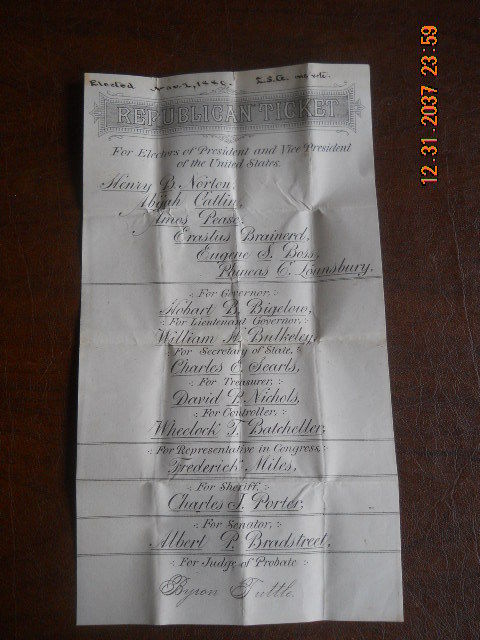 Elected Nov. 2, 1880. E.S.G. vote.
REPUBLICAN TICKET.
For Electors of President and Vice President
of the United States,
Henry B. Norton,
Abijah Catlin,
Ames Pease,
Erastus Brainerd,
Eugene S. Boss,
Phineas C. Lounsbury.
For Governor,
Hobart B. Bigelow,
For Lieutenant Governor,
William H. Bulkeley,
For Secretary of State,
Charles E. Searls,
For Treasurer,
David P. Nichols,
For Controller,
Wheelock T. Batcheller,
For Representative in Congress,
Frederick Miles,
For Sheriff,
Charles J. Porter,
For Senator,
Albert P. Bradstreet,
For Judge of Probate
Byron Tuttle.
12.31.2037 23:59